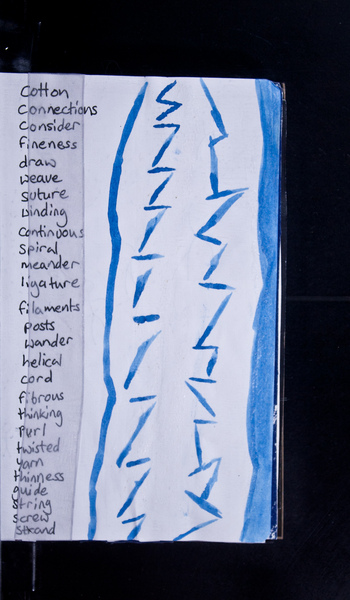 Cotton
Connections
Consider
fineness
draw
weave
suture
binding
continuous
spiral
meander
ligature
filaments
posts
wander
helical
cord
fibrous
thinking
Purl
twisted
yarn
thinness
guide
string
screw
strand